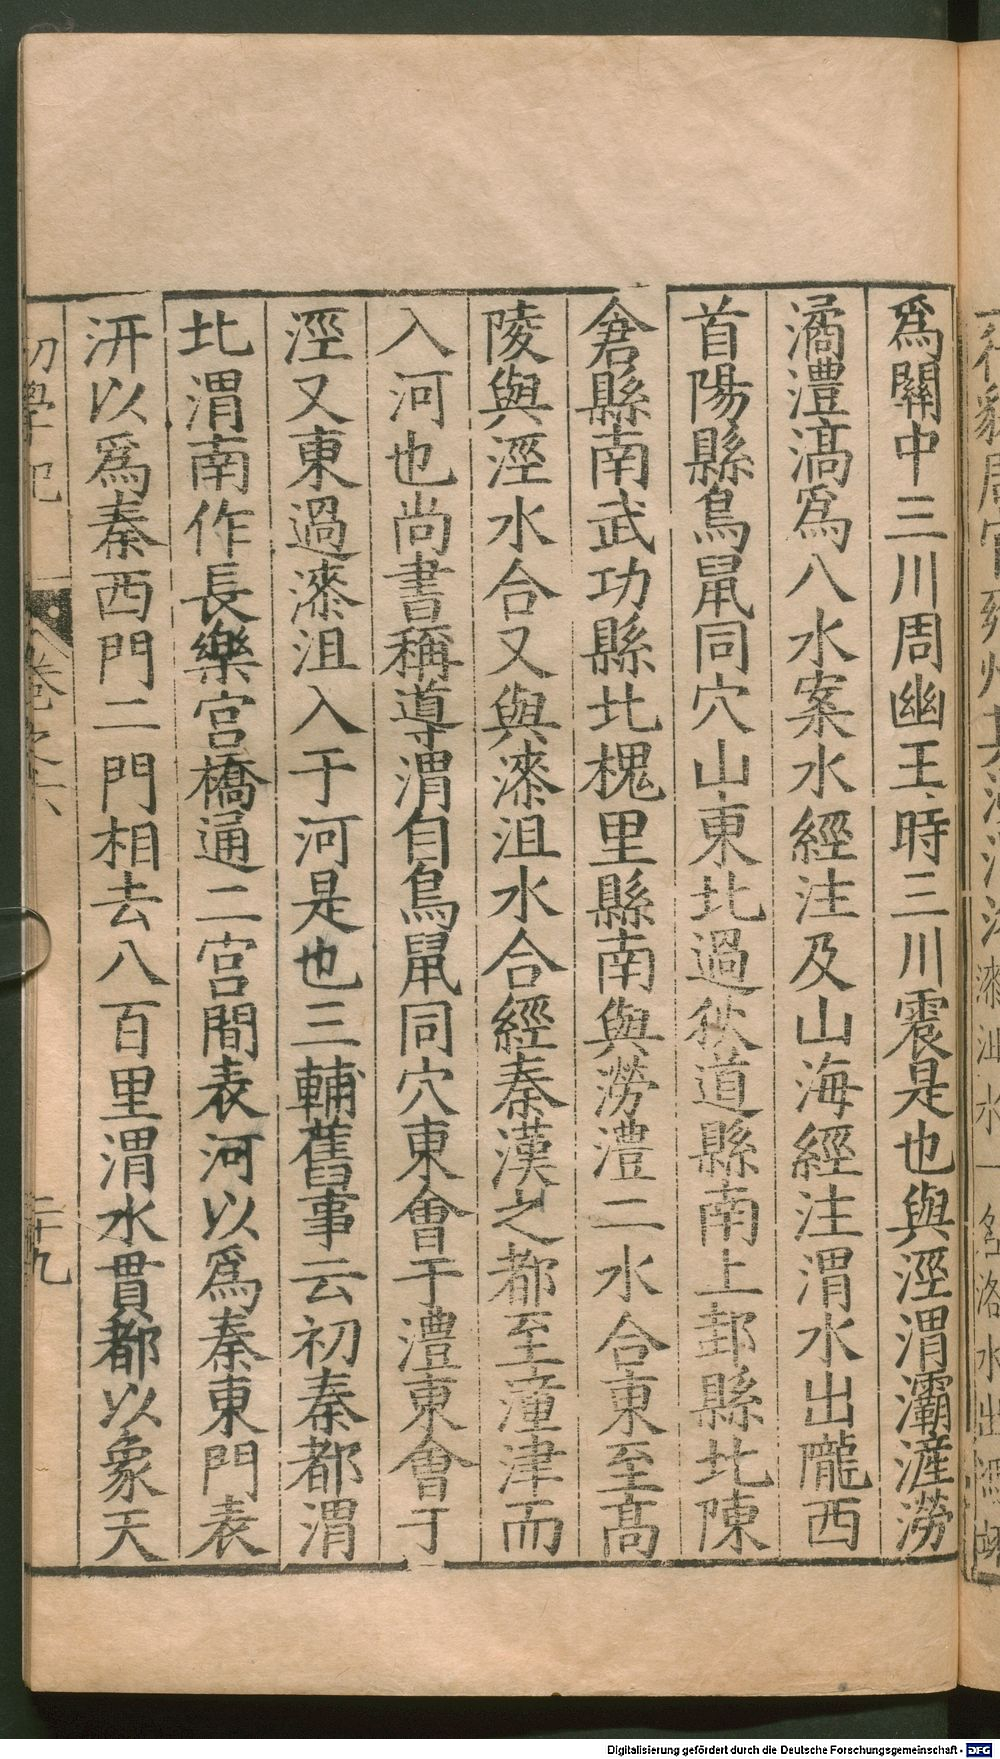 爲關中三川周幽王時三川震是也與涇渭灞滻澇
潏澧滈爲八水案水經注及山海經注渭水出隴西
首陽縣鳥鼠同穴山東北過狄道縣南上邽縣北陳
倉縣南武功縣北槐里縣南與澇澧二水合東至髙
陵與涇水合又與漆沮水合經秦漢之都至潼津而
入河也尚書稱導渭自鳥鼠同穴東會于澧東會于
涇又東過漆沮入于河是也三輔舊事云初秦都渭
北渭南作長樂宫橋通二宫間表河以爲秦東門表
汧以爲秦西門二門相去八百里渭水貫都以象天
初學記 卷之六 二十九
Digitalisierung gefördert durch die Deutsche Forschungsgemeinschaft - DFG